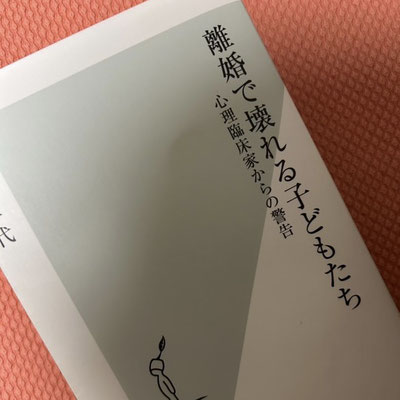 離婚で壊れる子どもたち
心理臨床家からの警告
代